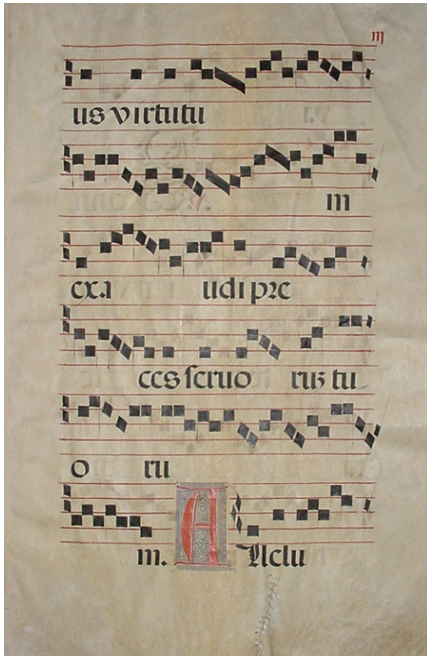 m
us virtutu
m
exa udi pre
ces seruo rū tu
o ru
m. Allelu